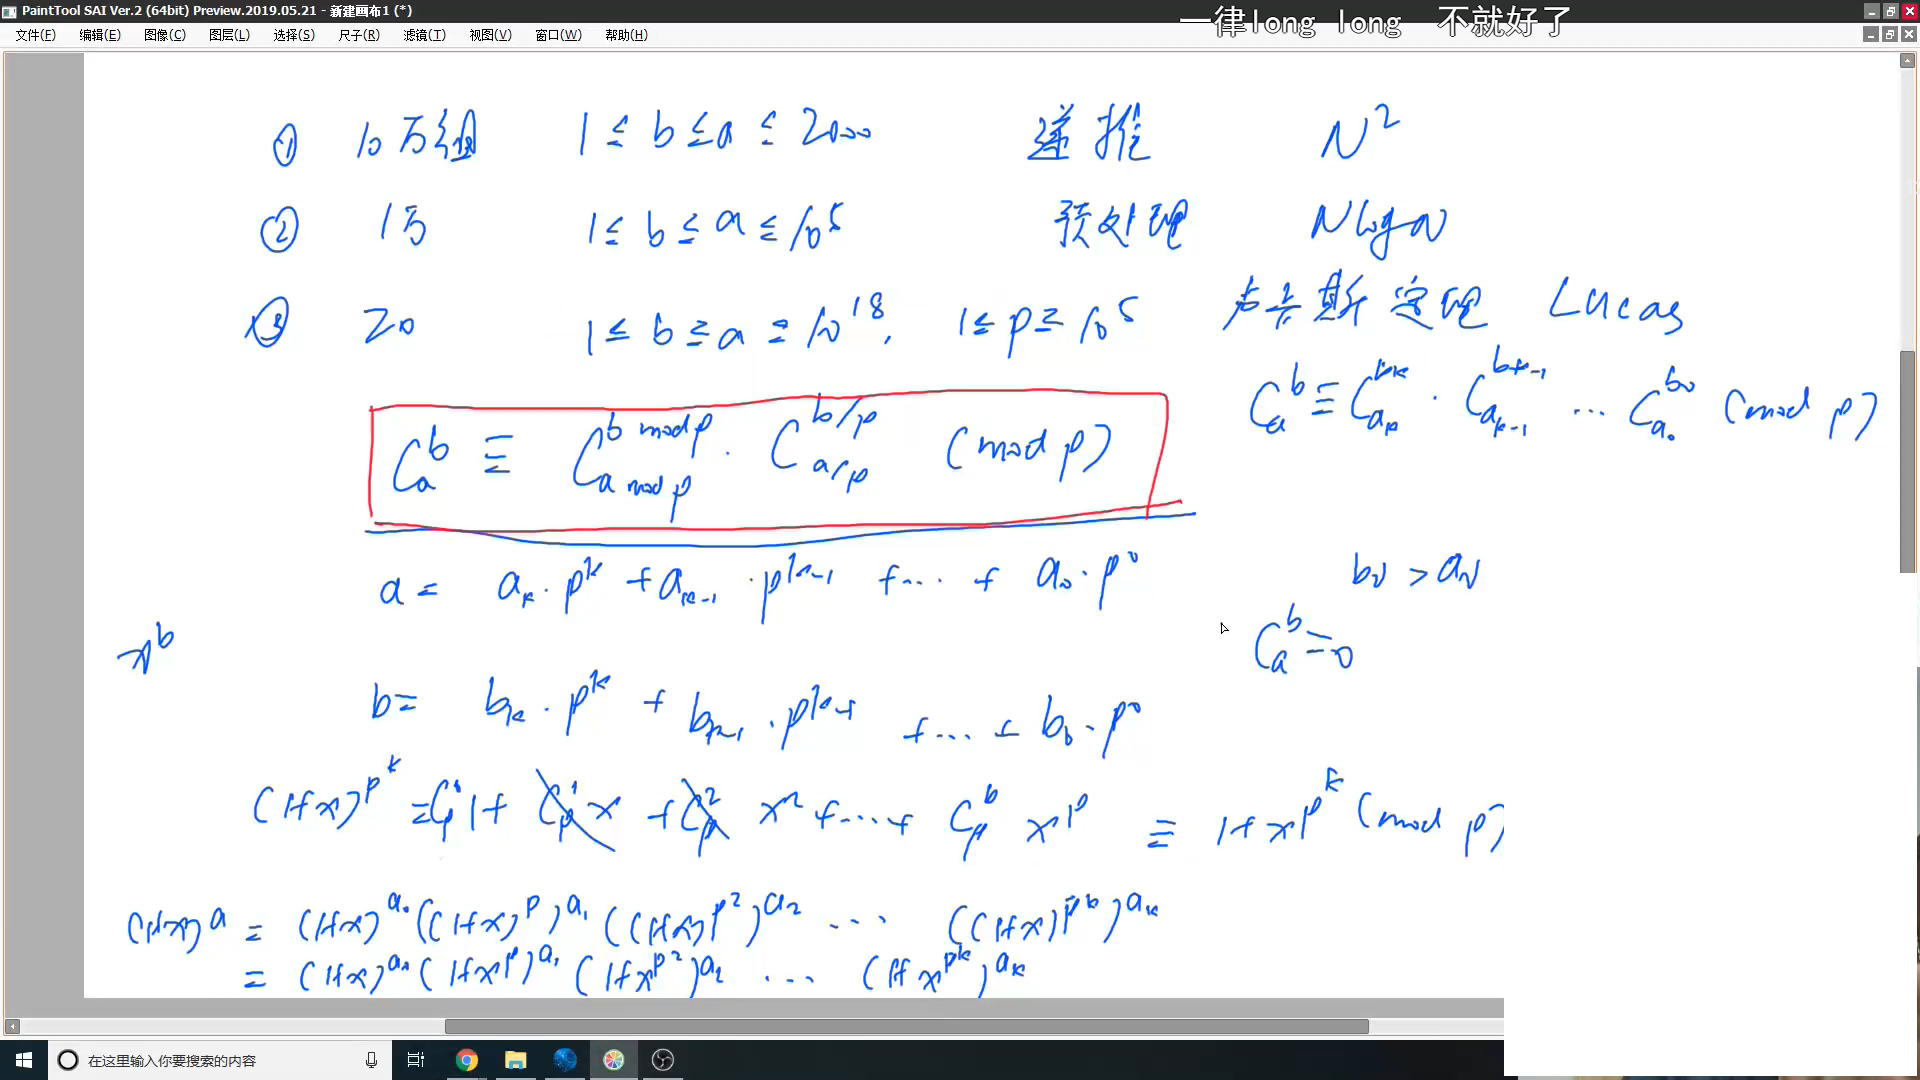 PaintTool SAI Ver.2 (64bit) Preview.2019.05.21 - 新建画布1 (*)
一律long long 不就好了
文件(F) 编辑(E) 图像(C) 图层(L) 选择(S) 尺子(R) 滤镜(T) 视图(V) 窗口(W) 帮助(H)
① 10万组 1 ≤ b ≤ a ≤ 2000 递推 N²
② 1万 1 ≤ b ≤ a ≤ 10⁵ 预处理 NlogN
③ 20 1 ≤ b ≤ a ≤ 10¹⁸, 1 ≤ p ≤ 10⁵ 卢卡斯定理 Lucas
C_a^b ≡ C_{a_k}^{b_k} · C_{a_{k-1}}^{b_{k-1}} ... C_{a_0}^{b_0} (mod p)
C_a^b ≡ C_{a mod p}^{b mod p} · C_{a/p}^{b/p} (mod p)
a = a_k · p^k + a_{k-1} · p^{k-1} + ... + a_0 · p^0
b_v > a_v
C_a^b = 0
x^b
b = b_k · p^k + b_{k-1} · p^{k-1} + ... + b_0 · p^0
(1+x)^{p^k} = C_p^0 1 + C_p^1 x + C_p^2 x² + ... + C_p^p x^p ≡ 1 + x^{p^k} (mod p)
(1+x)^a = (1+x)^{a_0} ((1+x)^p)^{a_1} ((1+x)^{p²})^{a_2} ... ((1+x)^{p^k})^{a_k}
= (1+x)^{a_0} (1+x^p)^{a_1} (1+x^{p²})^{a_2} ... (1+x^{p^k})^{a_k}
在这里输入你要搜索的内容